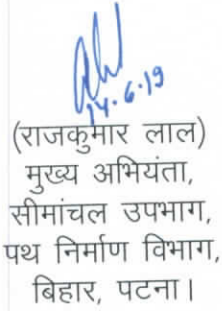 14.6.19
(राजकुमार लाल)
मुख्य अभियंता,
सीमांचल उपभाग,
पथ निर्माण विभाग,
बिहार, पटना।